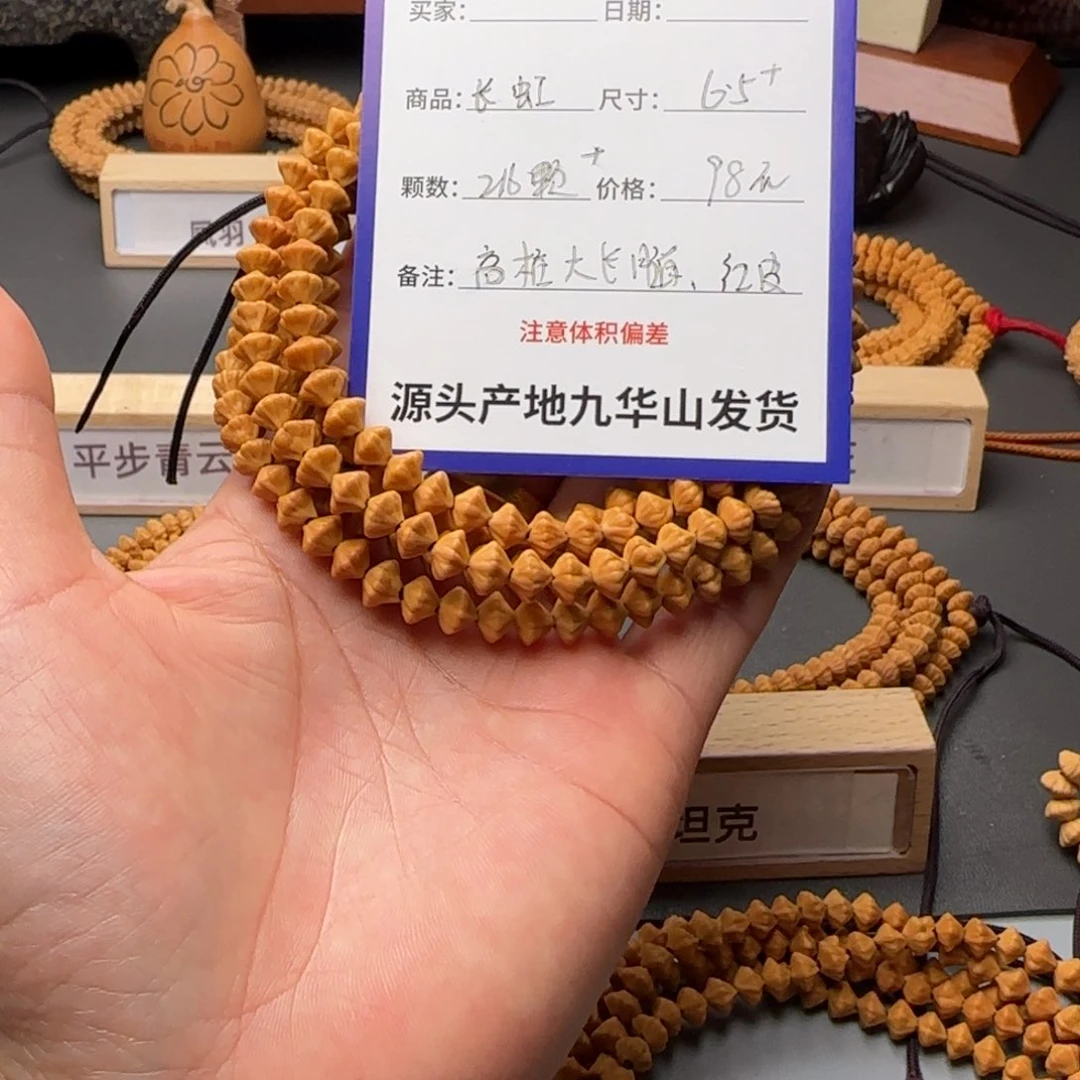 买家: 日期:
商品: 长虹 尺寸: 65+
颗数: 216颗+ 价格: 98元
备注: 高桩大长脚、红皮
注意体积偏差
源头产地九华山发货
凤羽
平步青云
坦克